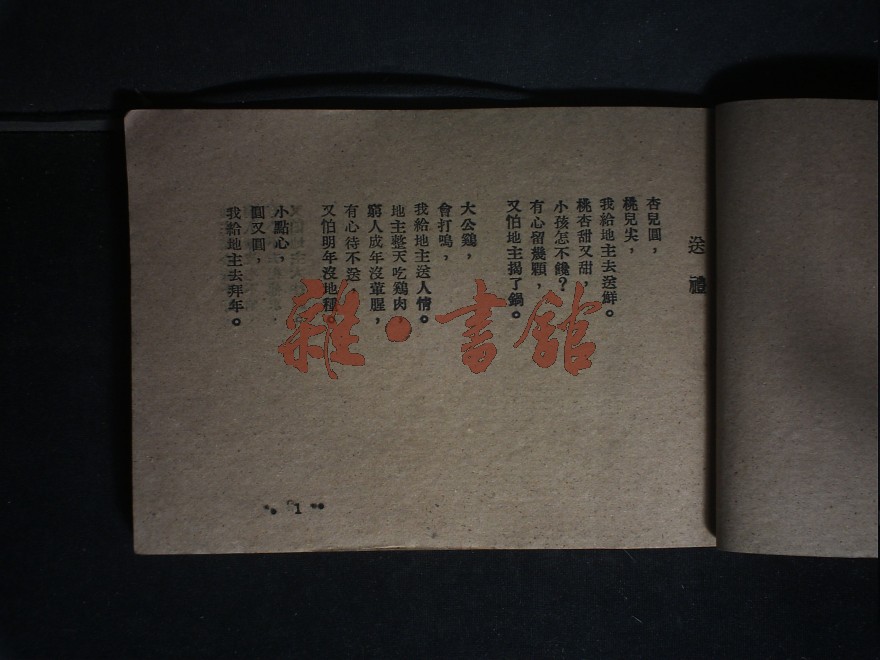 送禮
杏兒圓，
桃兒尖，
我給地主去送鮮。
桃杏甜又甜，
小孩怎不饞？
有心留幾顆，
又怕地主揭了鍋。
大公鷄，
會打鳴，
我給地主送人情。
地主整天吃鷄肉，
窮人成年沒葷腥，
有心待不送，
又怕明年沒地種。
小點心，
圓又圓，
我給地主去拜年。
1
雜·書館